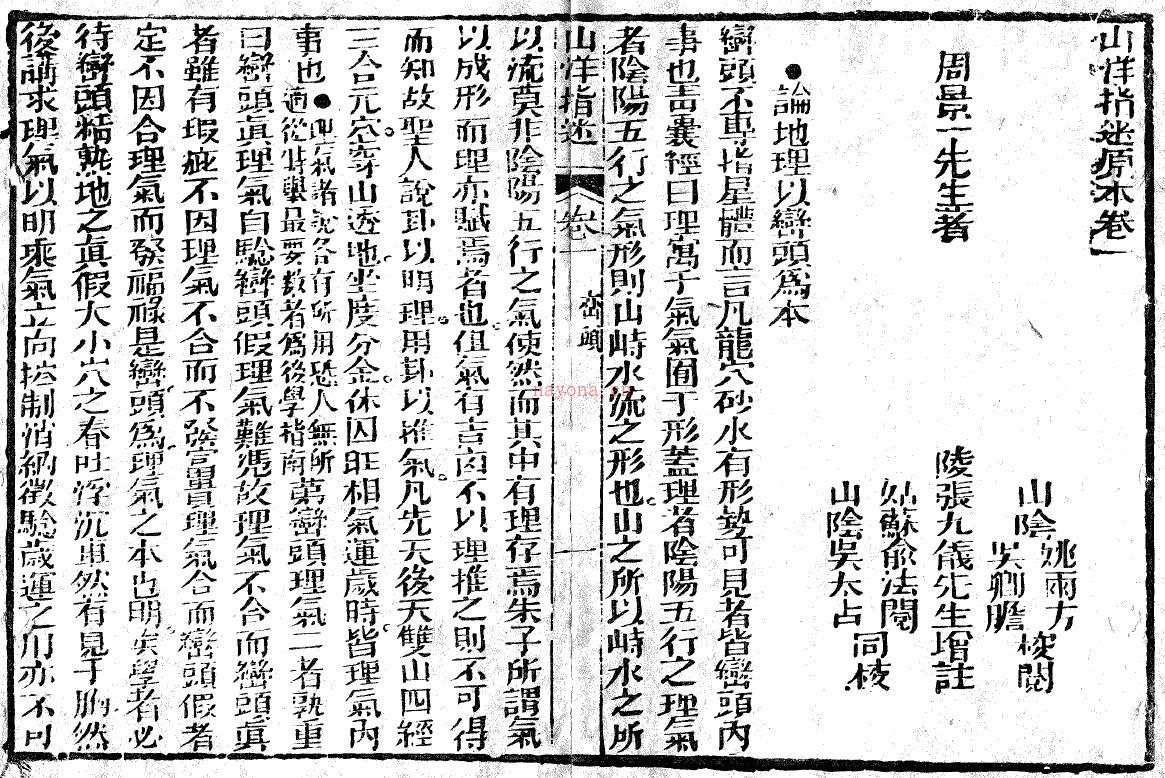 山洋指迷原本卷一
山陰
姚雨方
吳卿瞻
校閱
周景一先生著
陵張九儀先生增註
姑蘇俞法閱
山陰吳太占
同校
●論地理以巒頭爲本
巒頭不專指星體而言凡龍穴砂水有形勢可見者皆巒頭內
事也靑囊經曰理寓于氣氣囿于形蓋理者陰陽五行之理氣
者陰陽五行之氣形則山峙水流之形也山之所以峙水之所
山洋指迷 卷一 巒頭 一
以流莫非陰陽五行之氣使然而其中有理存焉朱子所謂氣
以成形而理亦賦焉者也但氣有吉凶不以理推之則不可得
而知故聖人說卦以明理用卦以推氣凡先天後天雙山四經
三合元空穿山透地坐度分金休囚旺相氣運歲時皆理氣內
事也●理氣諸說各有所用恐人無所
適從特舉最要數者爲後學指南第巒頭理氣二者孰重
曰巒頭眞理氣自驗巒頭假理氣難憑故理氣不合而巒頭眞
者雖有瑕疵不因理氣不合而不發富貴理氣合而巒頭假者
定不因合理氣而發福祿是巒頭爲理氣之本也明矣學者必
待巒頭精熟地之眞假大小穴之吞吐浮沉卓然有見于胸然
後講求理氣以明乘氣立向控制消納徵驗歲運之用亦不可
nayona.cn